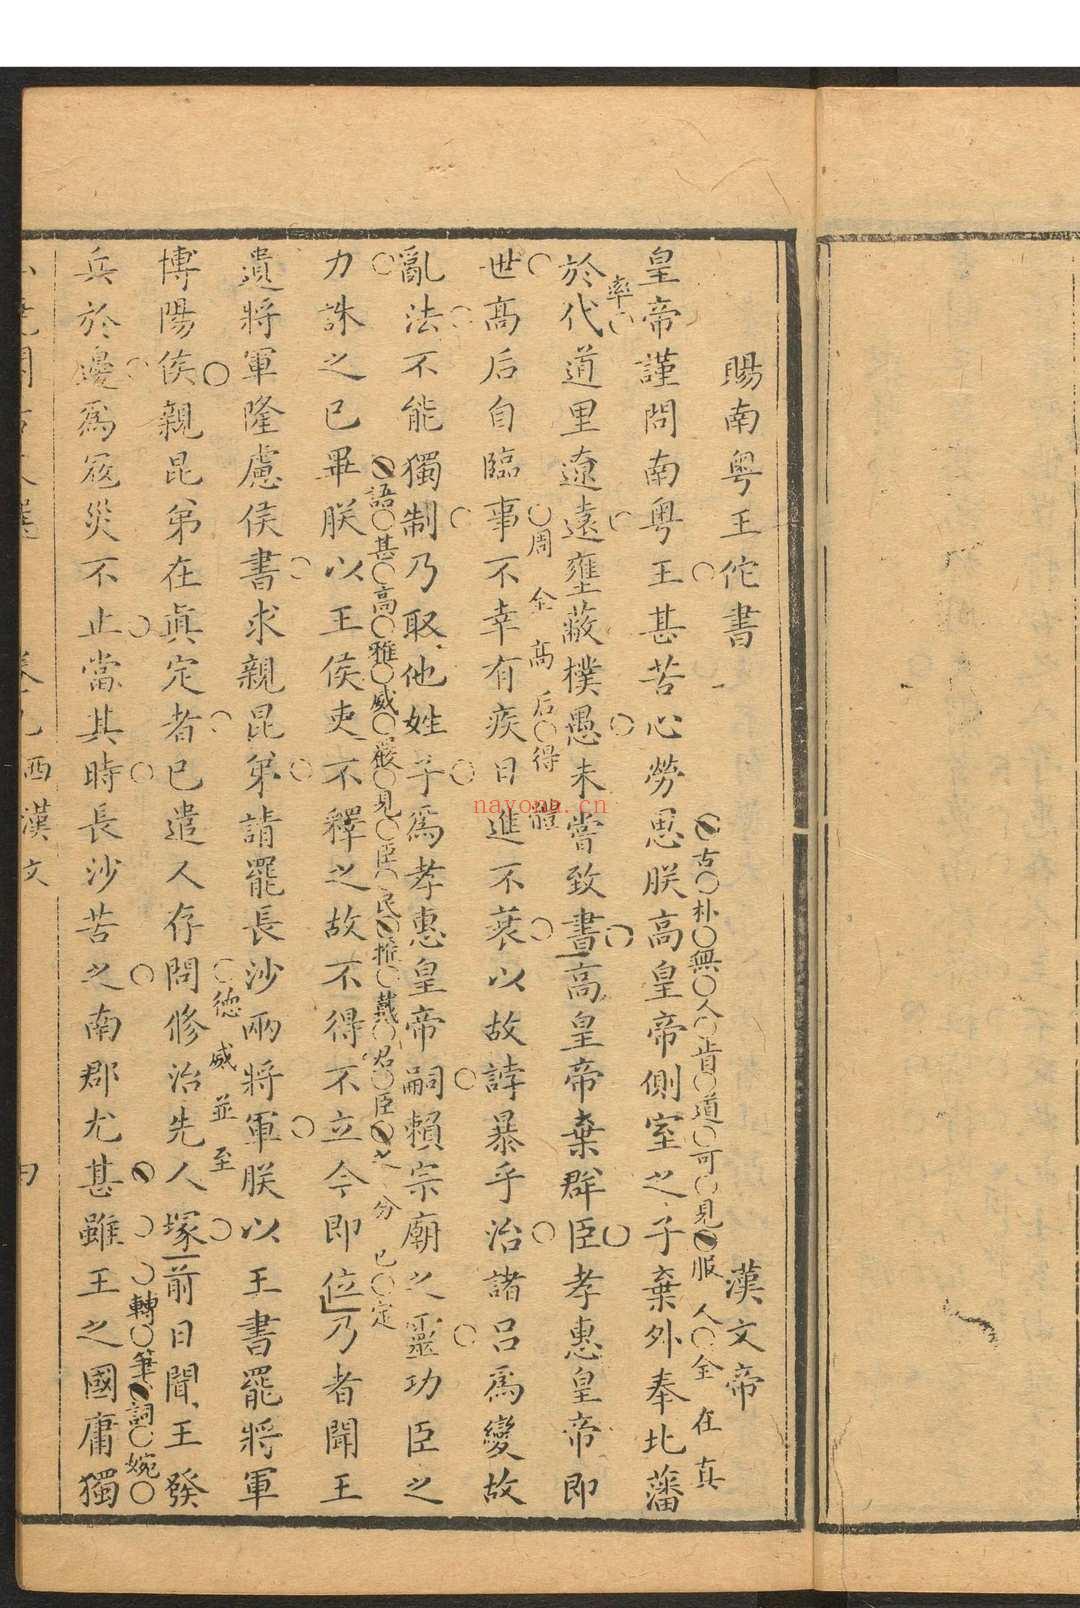 賜南粤王佗書　漢文帝
皇帝謹問南粤王甚苦心勞思朕高皇帝側室之子棄外奉北藩
古朴無人肯道可見服人全在真
於代道里遼遠壅蔽樸愚未嘗致書高皇帝棄群臣孝惠皇帝即
率
世高后自臨事不幸有疾日進不衰以故誖暴乎治諸呂為變故
周全高后得體
亂法不能獨制乃取他姓子為孝惠皇帝嗣賴宗廟之靈功臣之
力誅之已畢朕以王侯吏不釋之故不得不立今即位乃者聞王
語甚高雅威嚴見臣民推戴君臣之分已定
遺將軍隆慮侯書求親昆弟請罷長沙兩將軍朕以王書罷將軍
博陽侯親昆弟在真定者已遣人存問修治先人塚前日聞王發
德威並至
兵於邊為寇災不止當其時長沙苦之南郡尤甚雖王之國庸獨
轉筆詞婉
西漢文
nayona.cn